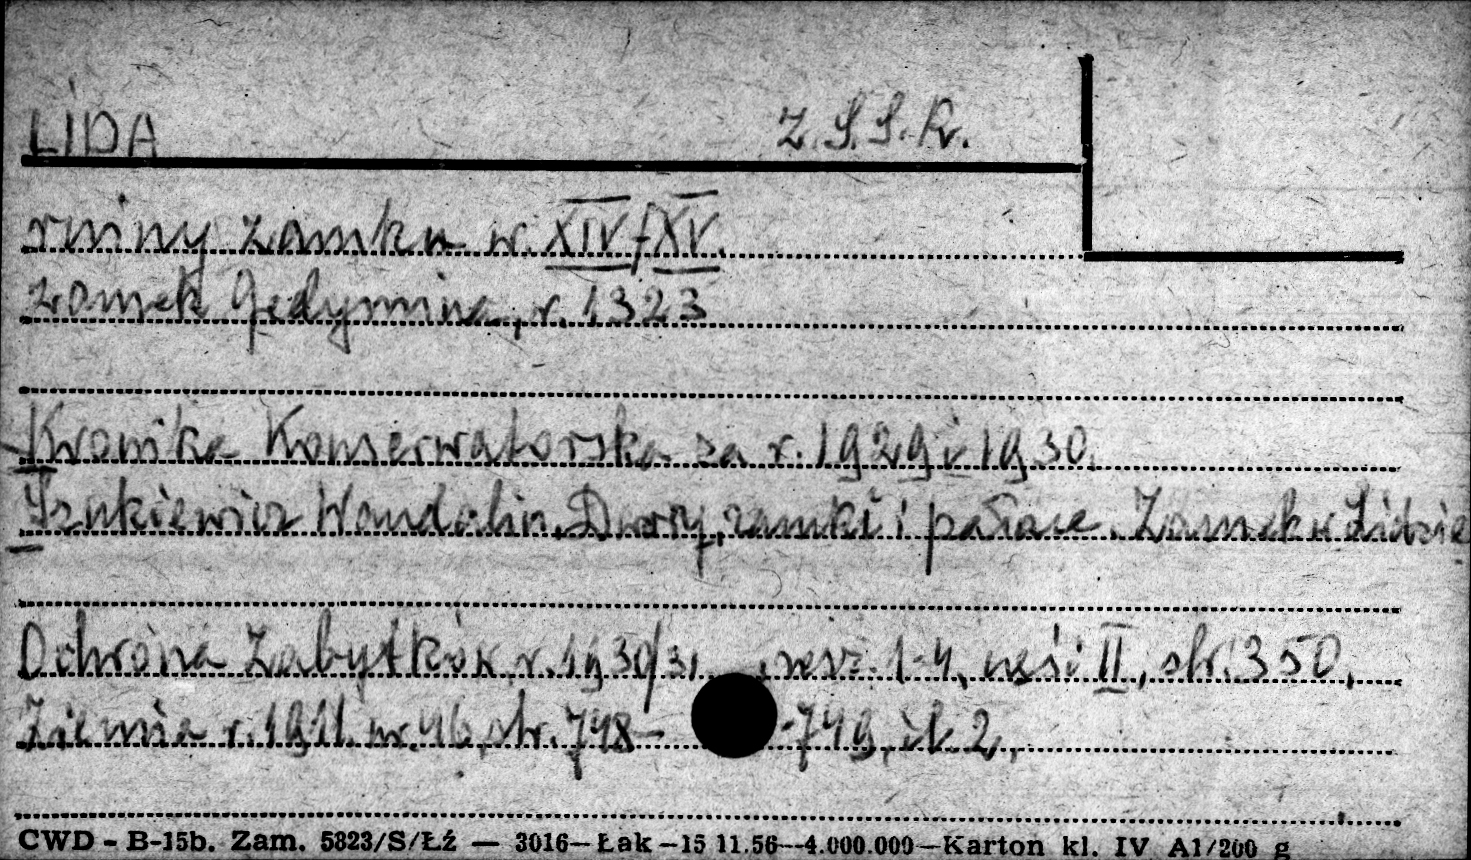 LIDA Z.S.S.R.
ruiny zamku w. XIV/XV.
zamek Gedymina, r. 1323
Kronika Konserwatorska za r. 1929 i 1930.
Szukiewicz Wandalin. Dwory, zamki i pałace. Zamek w Lidzie
Ochrona Zabytków, r. 1930/31, zesz. 1-4, część II, str. 350.
Ziemia r. 1911. nr. 46, str. 748- -749, il. 2,
CWD - B-15b. Zam. 5823/S/Łź — 3016—Łak—15 11.56—4.000.000—Karton kl. IV A1/200 g